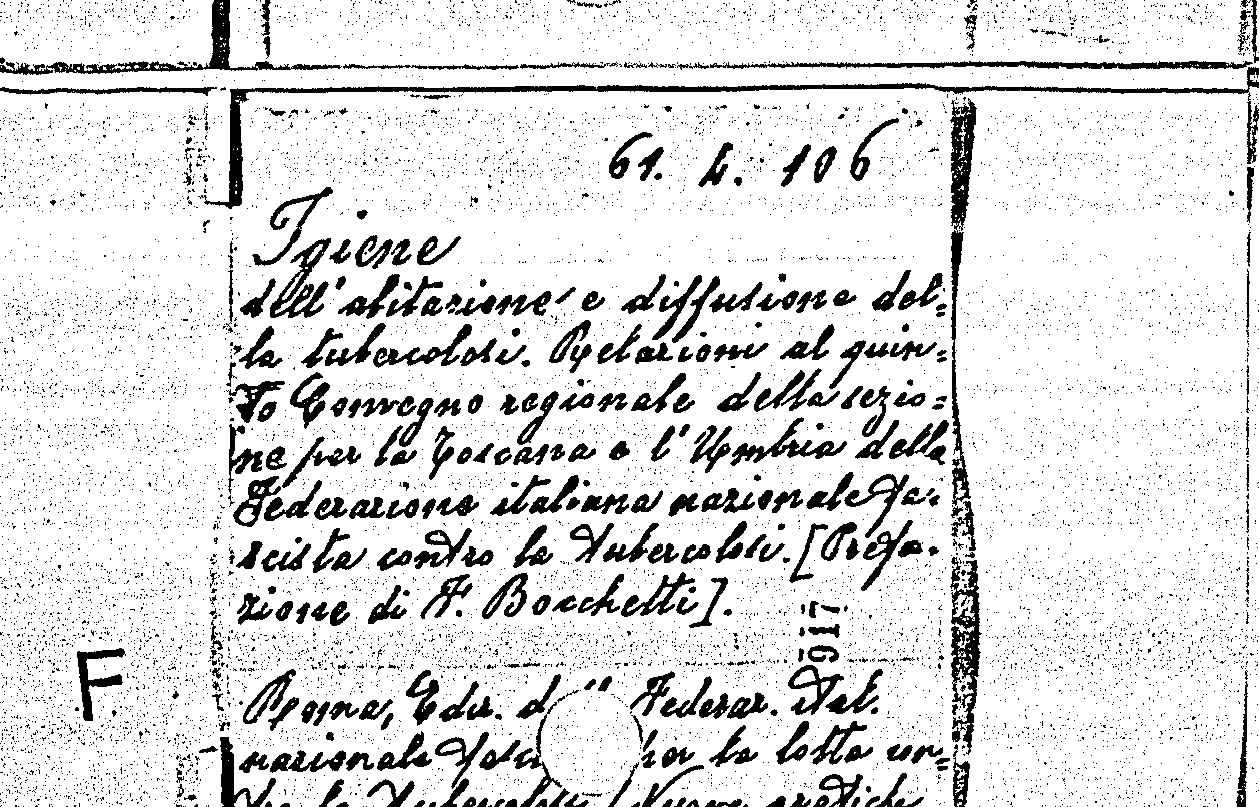 61. 4. 106
Igiene
dell'abitazione e diffusione del=
la tubercolosi. Relazioni al quin=
to Convegno regionale della sezio=
ne per la Toscana e l'Umbria della
Federazione italiana nazionale fa-
scista contro la tubercolosi. [Prefa-
zione di F. Bocchetti].
917
F
Roma, Ediz. d Federaz. Ital.
nazionale fasc per la lotta con=
tro la tubercolosi